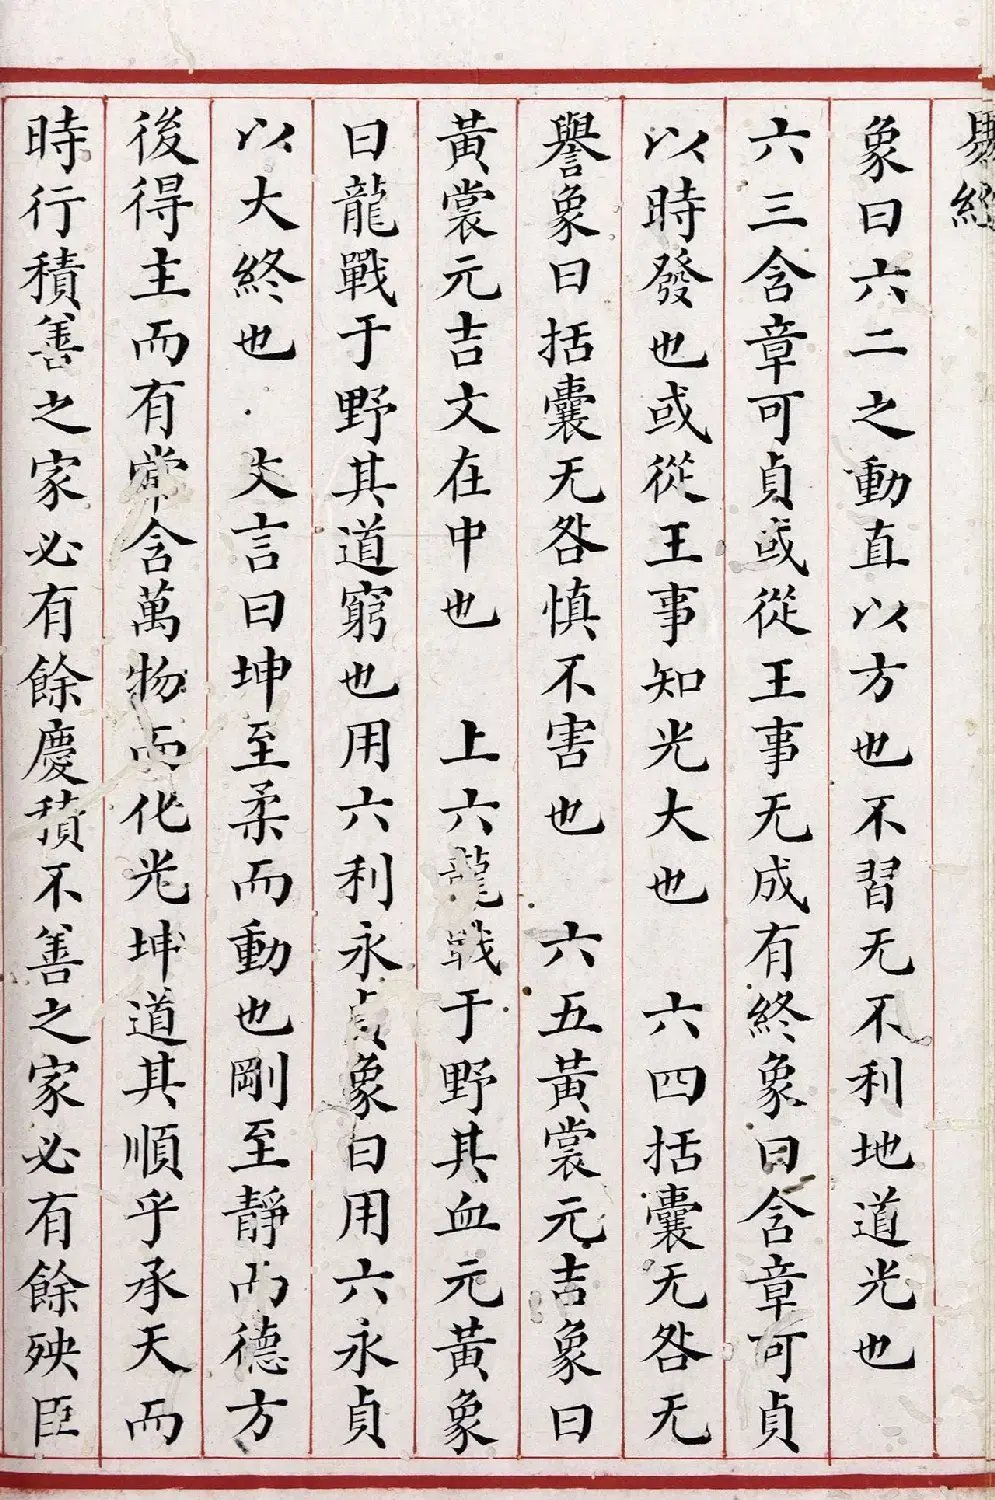 易經
象曰六二之動直以方也不習无不利地道光也
六三含章可貞或從王事无成有終象曰含章可貞
以時發也或從王事知光大也　六四括囊无咎无
譽象曰括囊无咎慎不害也　六五黃裳元吉象曰
黃裳元吉文在中也　上六龍戰于野其血元黃象
曰龍戰于野其道窮也用六利永貞象曰用六永貞
以大終也　文言曰坤至柔而動也剛至靜而德方
後得主而有常含萬物而化光坤道其順乎承天而
時行積善之家必有餘慶積不善之家必有餘殃臣